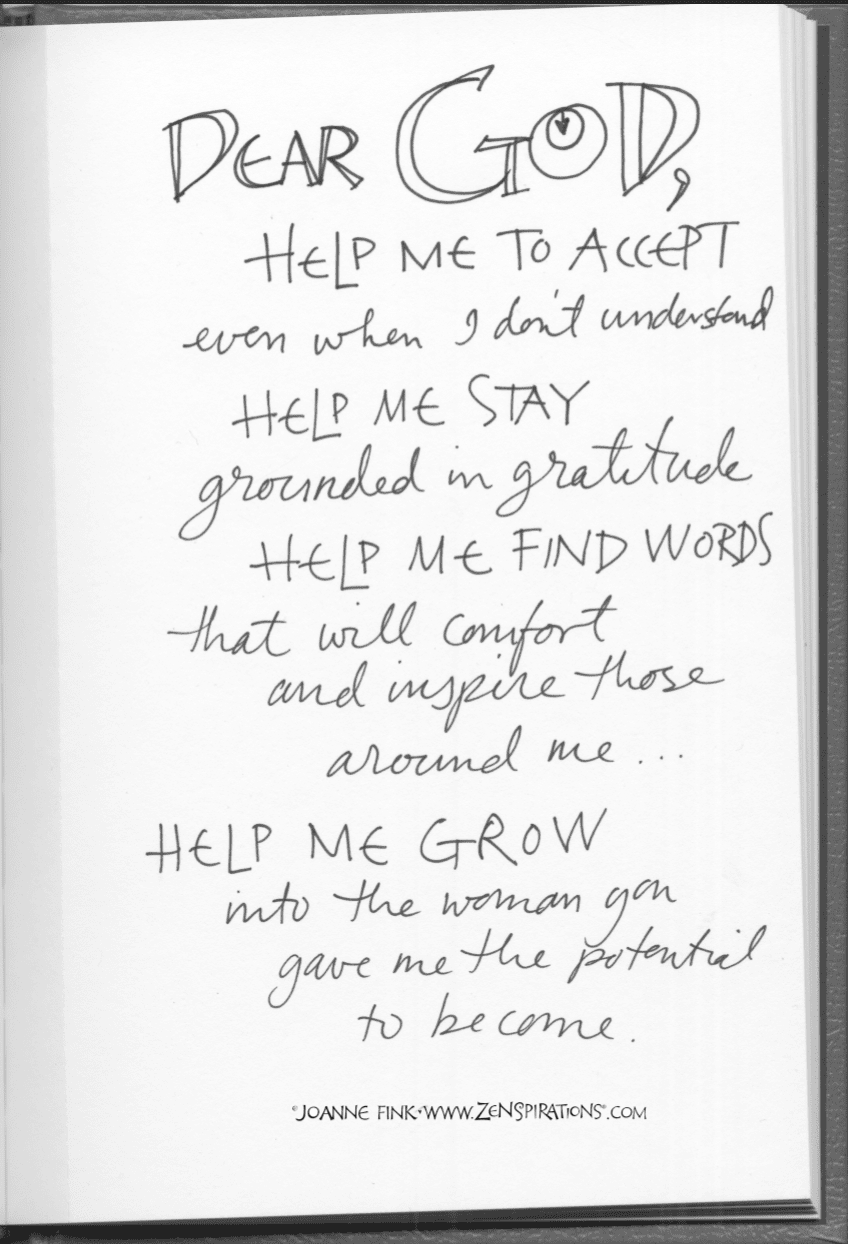 DEAR GOD,
HELP ME TO ACCEPT
even when I don't understand
HELP ME STAY
grounded in gratitude
HELP ME FIND WORDS
that will comfort
and inspire those
around me...
HELP ME GROW
into the woman you
gave me the potential
to become.
©JOANNE FINK•WWW.ZENSPIRATIONS®.COM